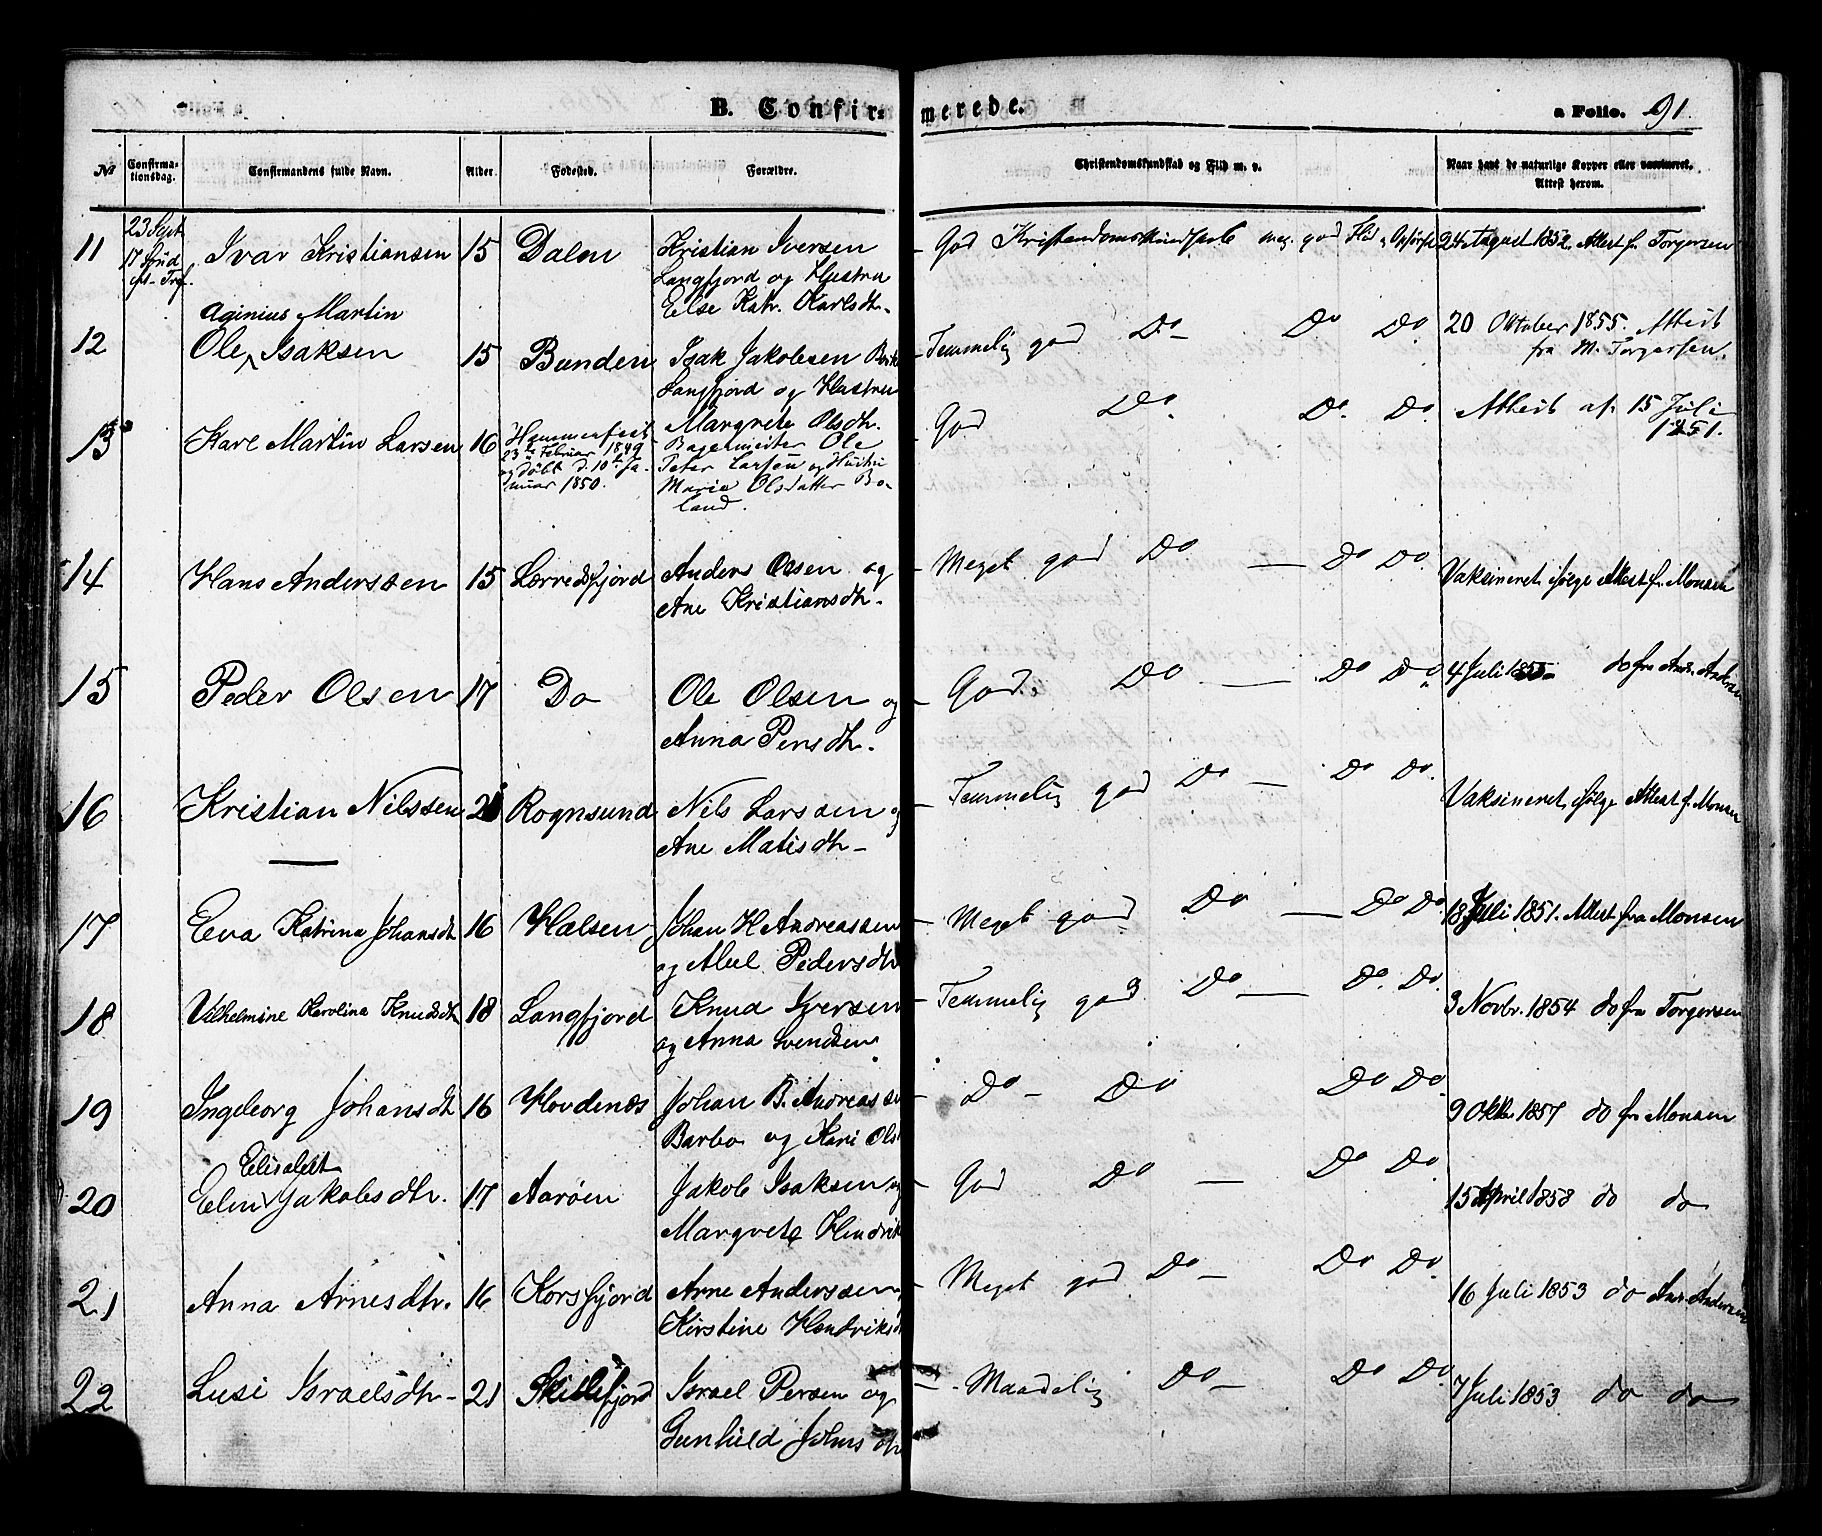 B. Confir- merede. a Folio. 91.
№ Confirma-tionsdag. Confirmandens fulde Navn. Alder. Fødested. Forældre. Christendomskundskab og Flid m. v. Naar havt de naturlige Kopper eller vaccineret. Attest herom.
11 23 Sept 17 Ivar Kristiansen 15 Dalen Kristian Iversen - God Kristendomskundskab meg. god Flid og Opførsel 24 August 1852. Attest fr. Torgersen
Langfjord og Hustru
Else Katr. Karlsdtr.
Aginius Martin
12 Ole Isaksen 15 Bunden Isak Jakobsen - Temmelig god Do - Do Do. 20 Oktober 1855. Attest
fra M. Torgersen.
Langfjord og Hustru
Margrete Olsdtr.
13 Karl Martin Larsen 16 Hammerfest Bagermeister Ole - God Do. Do. Do. Attest af 15 Juli
1851.
23de Februar 1849 Peter Larsen og Hustru
og døbt d. 10de Ja- Marie Olsdatter Bo-
nuar 1850. land.
14 Hans Anderssen 15 Lerredsfjord Anders Olsen og - Meget god Do — Do Do. Vaksineret ifølge Attest f. Monsen
Ane Kristiansdtr.
15 Peder Olsen 17 Do Ole Olsen og - God. Do — Do Do. 4 Juli 1855 do fra Anr. Andersen
Anna Persdtr.
16 Kristian Nilssen Rognsund Nils Larssen og - Temmelig god Do — Do Do. Vaksineret ifølge Attest f. Monsen
Ane Matisdtr -
17 Eva Katrina Johansdtr 16 Halsen Johan H Andreassen - Meget god Do — Do Do. 18 Juli 1851. Attest fra Monsen
og Abel Pedersdtr
18 Vilhelmine Karolina Knudsdtr 18 Langfjord Knud Iversen - Temmelig god Do — Do. Do. 3 Novbr. 1854 do fra Torgersen
og Anna Svendsen
19 Ingeborg Johansdtr 16 Hovdenæs Johan B. Andreassen - Do - Do Do Do. 9 Oktbr 1857 do fra Monsen
Barbo og Kari Ols
Elisabet
20 Elen Jakobsdtr. 17 Aarøen Jakob Isaksen og - God Do — Do Do. 15 April 1858 do do
Margrete Hendrik
21 Anna Arnesdtr. 16 Korsfjord Arne Anderssen - Meget god Do - Do Do. 16 Juli 1853 do Anr. Andersen
Kirstine Hendriksd
22 Lusi Israelsdtr - 21 Skillefjord Israel Persen og - Maadelig Do - Do Do. 7 Juli 1853 do do
Gunhild Johnsdtr